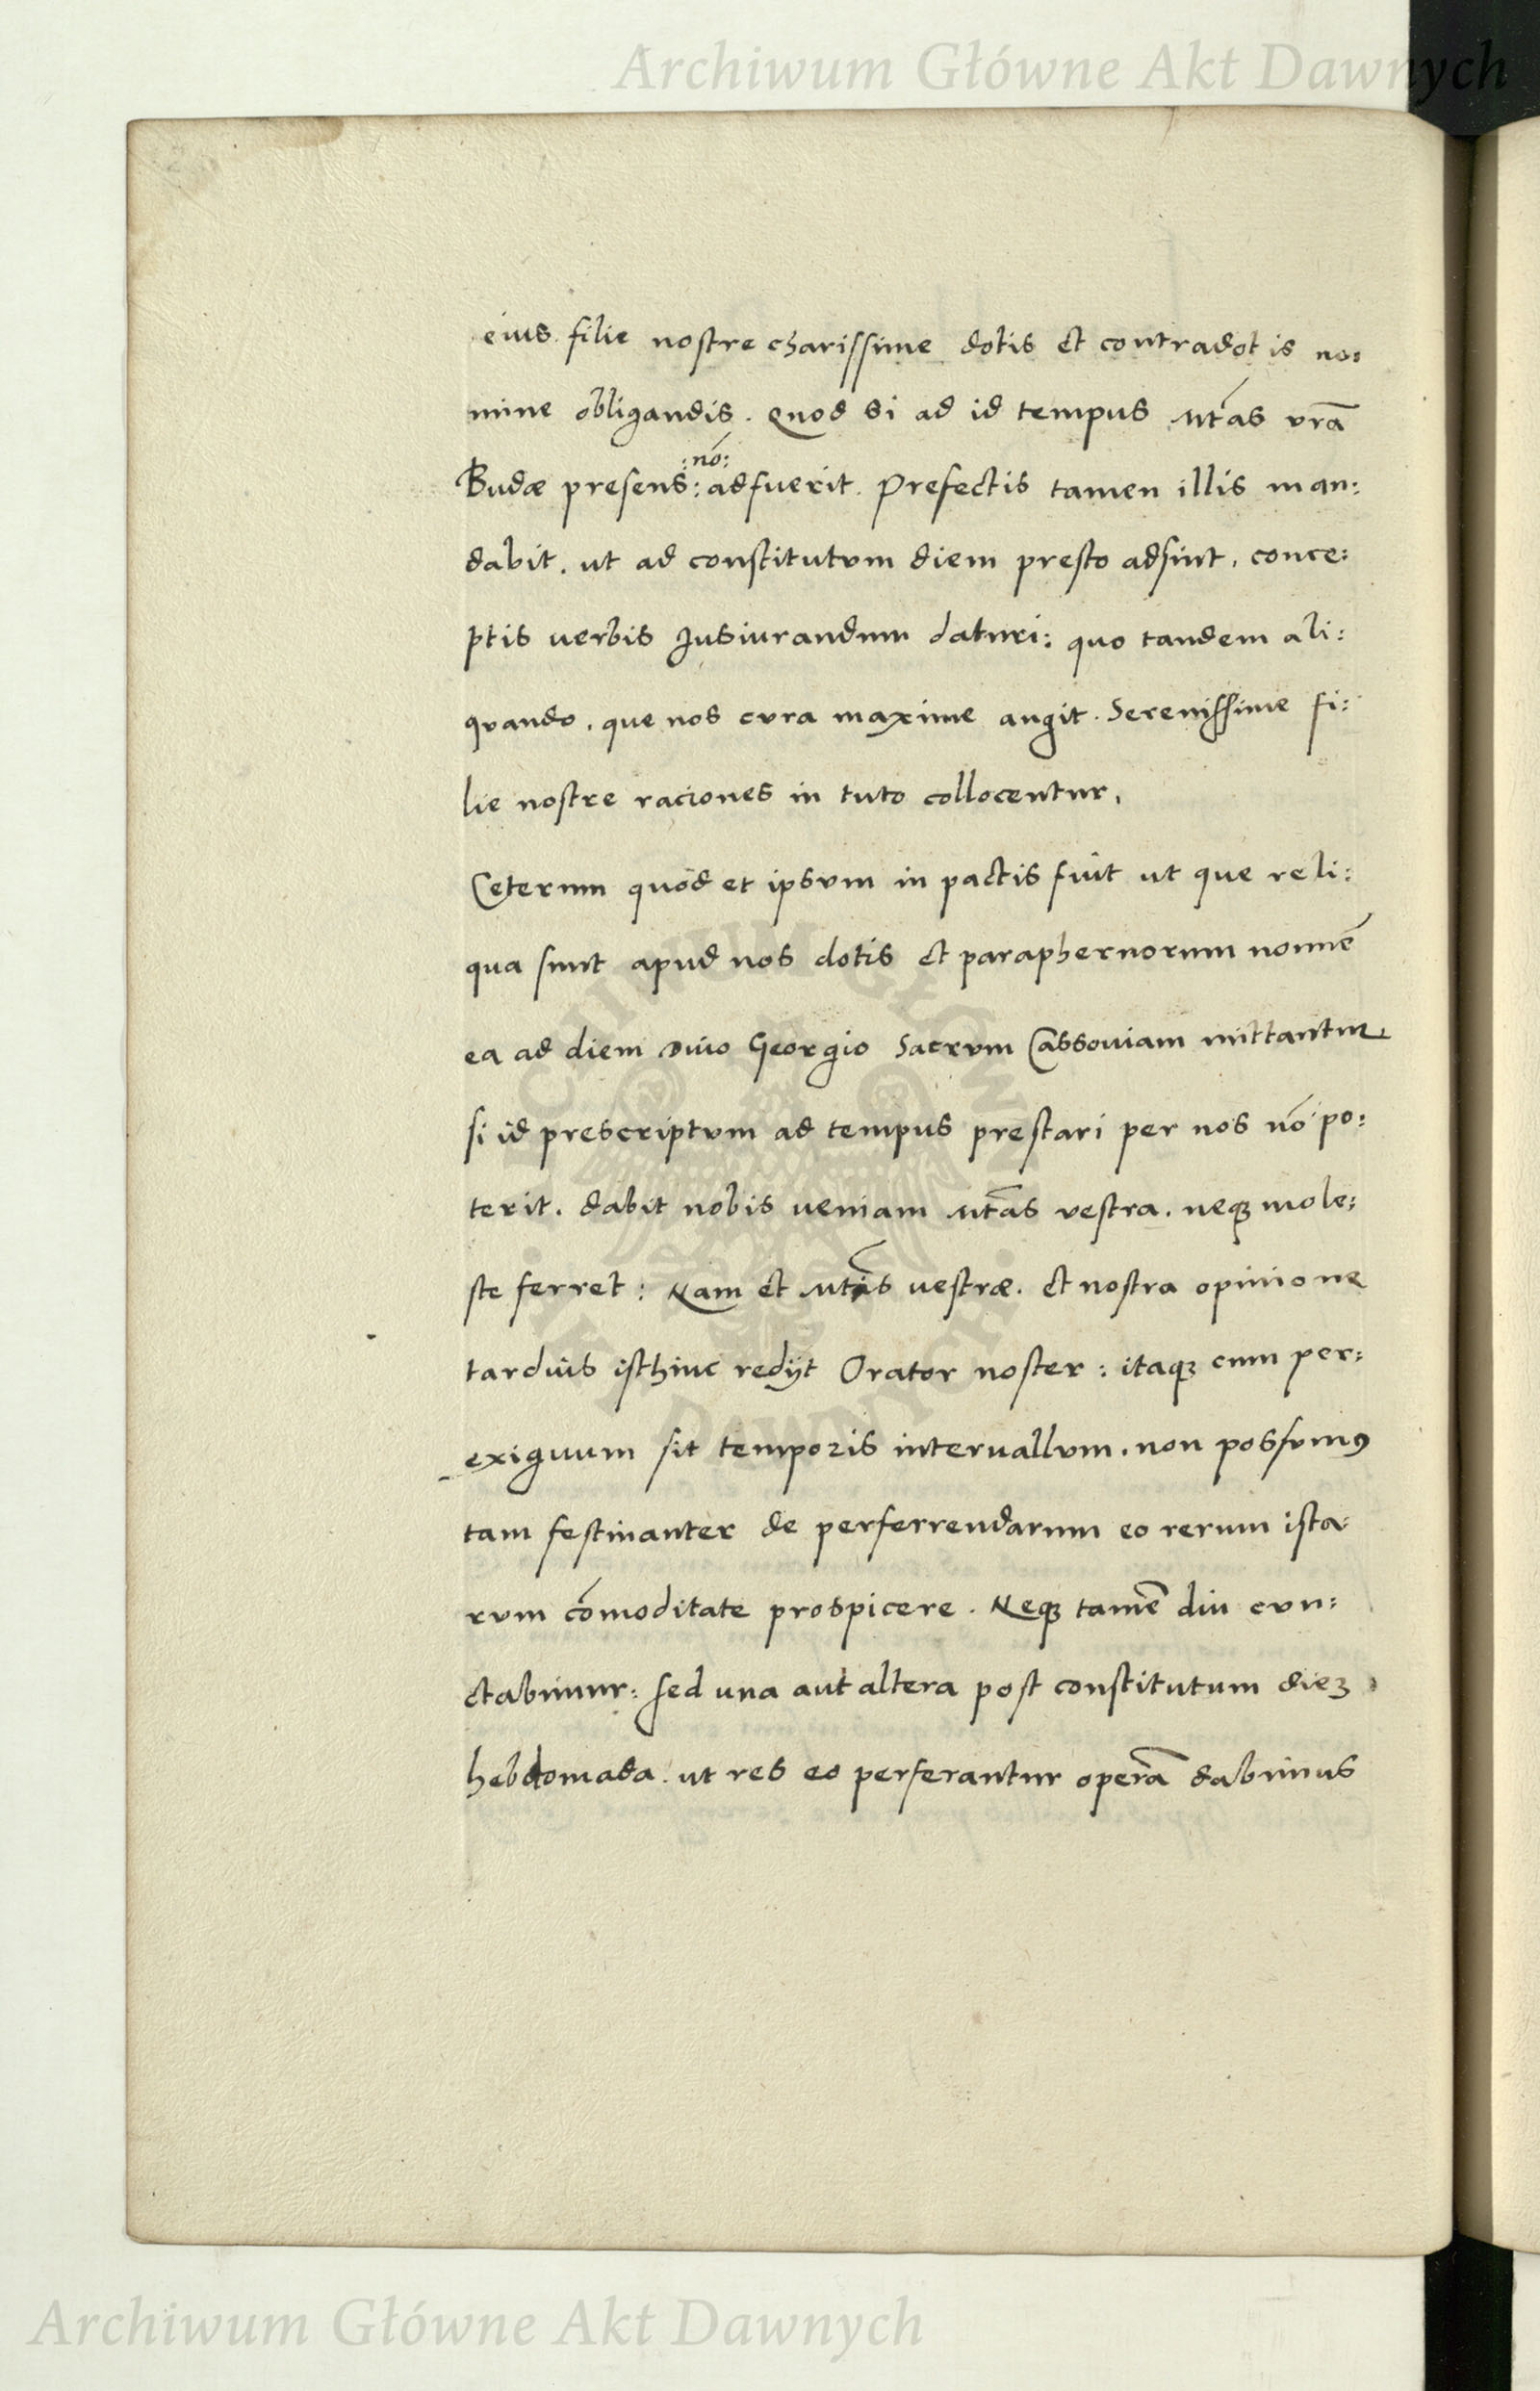 Archiwum Główne Akt Dawnych
eius filie nostre charissime dotis et contradotis no:
mine obligandis. Quod si ad id tempus Mtas vrā
:nō:
Budæ presens: adfuerit. Prefectis tamen illis man:
dabit. ut ad constitutum diem presto adsint, conce:
ptis uerbis Jusiurandum daturi: quo tandem ali:
quando, que nos cura maxime angit. Serenissime fi:
lie nostre raciones in tuto collocentur.
Ceterum quod et ipsum in pactis fuit ut que reli:
qua sunt apud nos dotis et paraphernorum nomīe
ea ad diem Diuo Georgio Sacrum Cassouiam mittantur.
si id prescriptum ad tempus prestari per nos nō po:
terit. dabit nobis ueniam Mtas vestra. neqȝ mole:
ste ferret: Nam et Mtis uestræ. et nostra opinione
tardius isthinc redijt Orator noster: itaqȝ cum per:
exiguum sit temporis interuallum. non possumꝰ
tam festinanter de perferrendarum eo rerum ista:
rum cōmoditate prospicere. Neqȝ tamē diu cun:
ctabimur: sed una aut altera post constitutum dieȝ
hebdomada. ut res eo perferantur operā dabimus
ARCHIWUM GŁÓWNE AKT DAWNYCH
Archiwum Główne Akt Dawnych